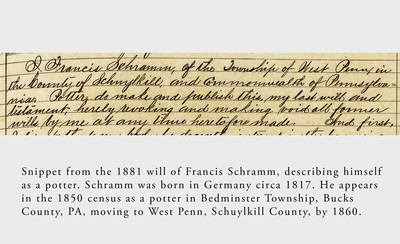 I Francis Schramm, of the Township of West Penn in
the County of Schuylkill, and Commonwealth of Pennsylva-
nia, Potter, do make and publish this, my last will and
testament, hereby revoking and making void all former
wills by me at any time heretofore made. And first,
Snippet from the 1881 will of Francis Schramm, describing himself
as a potter. Schramm was born in Germany circa 1817. He appears
in the 1850 census as a potter in Bedminster Township, Bucks
County, PA, moving to West Penn, Schuylkill County, by 1860.